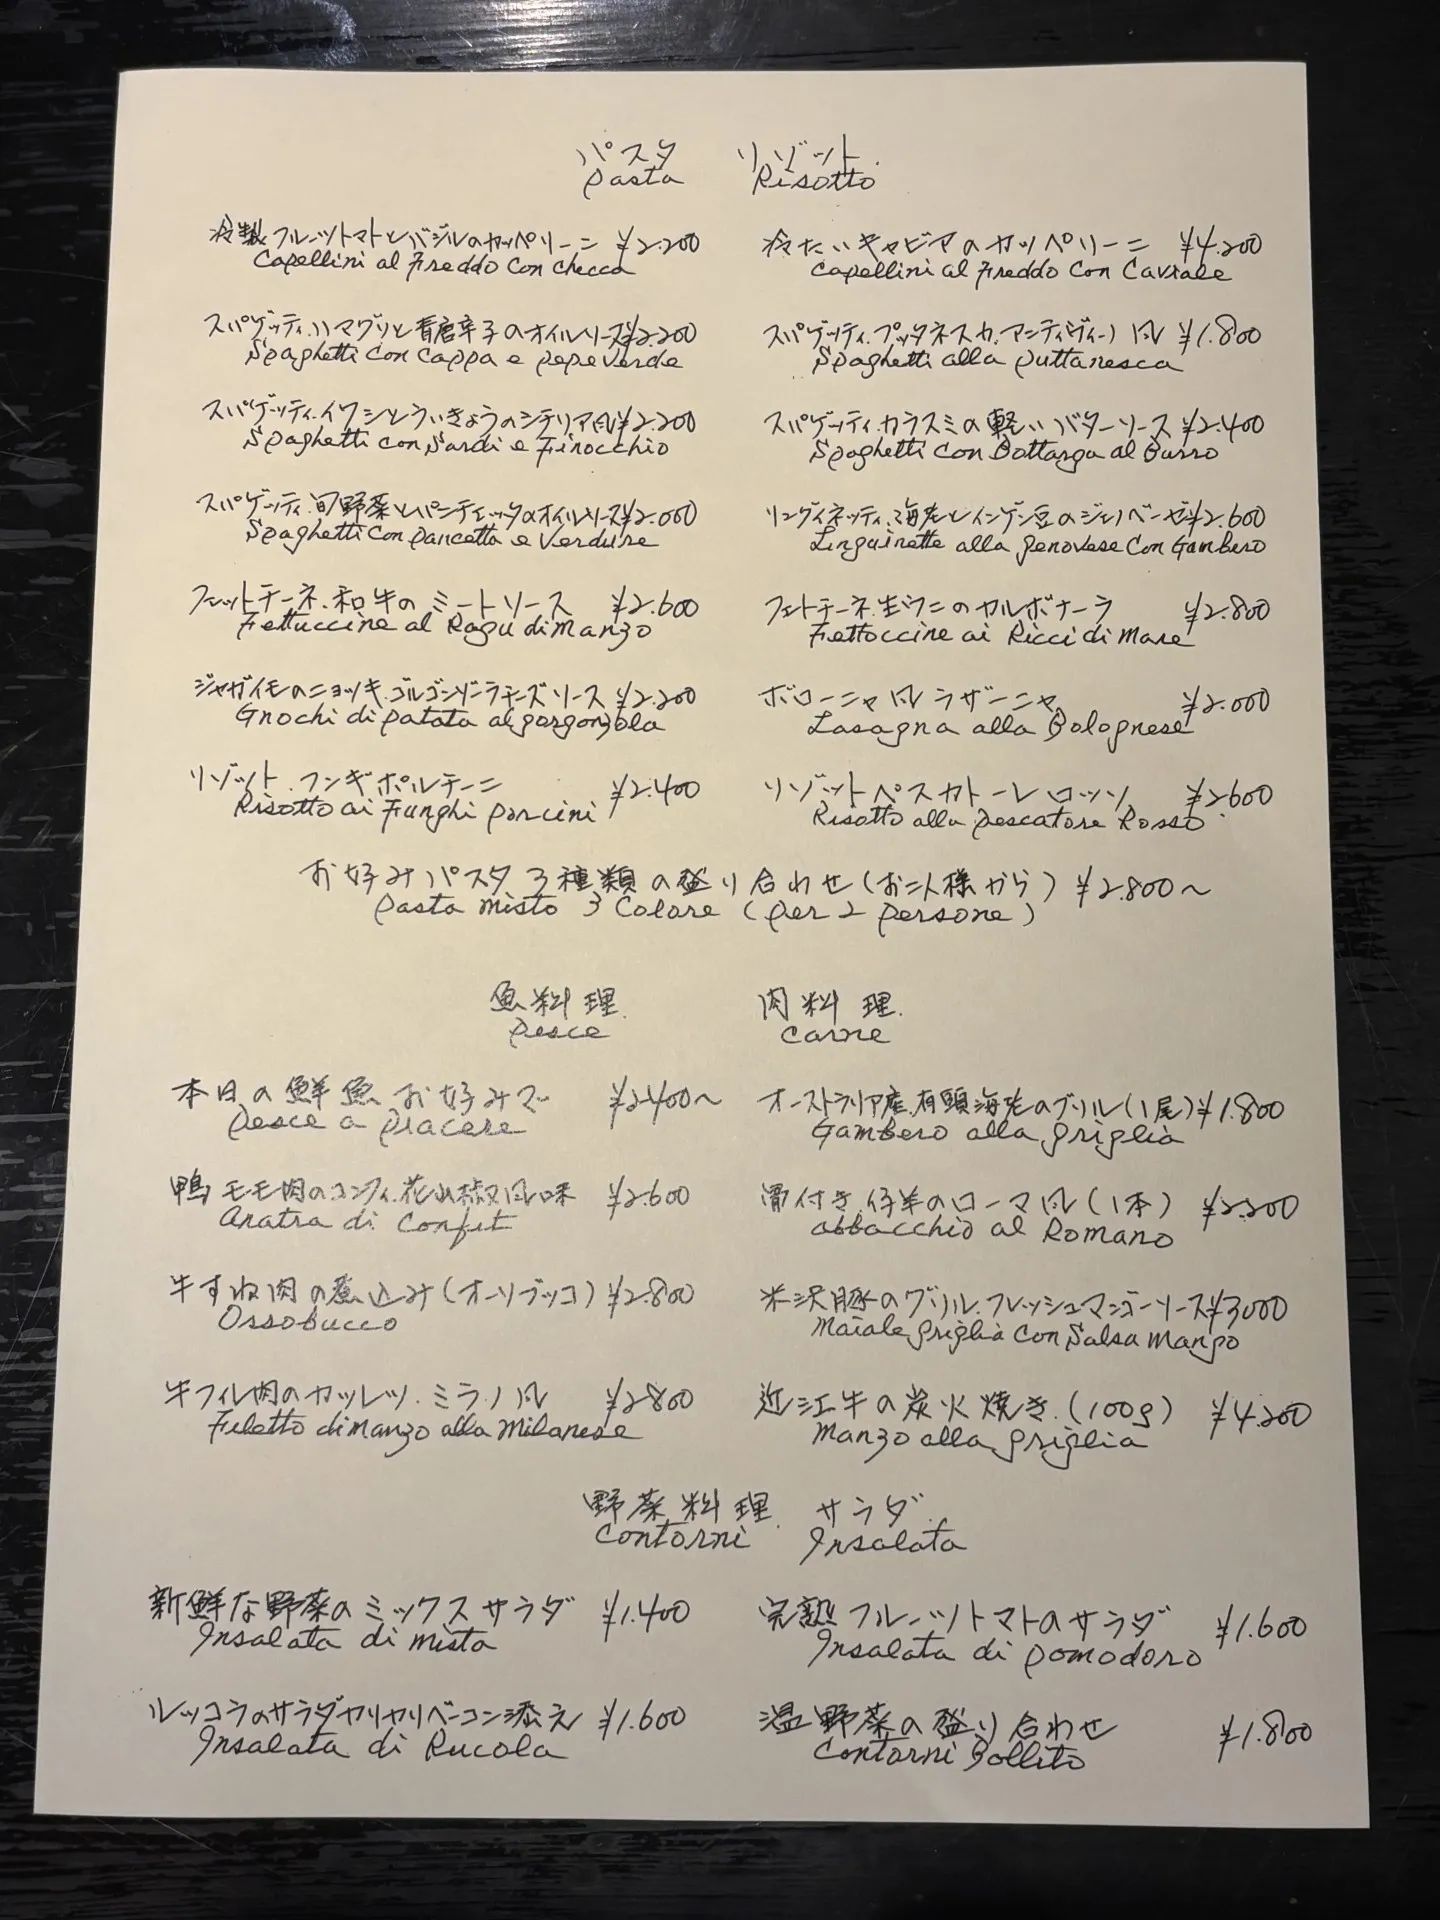 パスタ リゾット
Pasta Risotto
冷製フルーツトマトとバジルのカッペリーニ ¥2.200
Capellini al Freddo Con checca
冷たいキャビアのカッペリーニ ¥4.200
Capellini al Freddo Con Caviale
スパゲッティ.ハマグリと青唐辛子のオイルソース¥2.200
Spaghetti con cappa e pepe verde
スパゲッティ.プッタネスカ.アンティヴィーノ風 ¥1.800
Spaghetti alla puttanesca
スパゲッティ.イワシとういきょうのシチリア風¥2.200
Spaghetti con Sardi e Finocchio
スパゲッティ.カラスミの軽いバターソース ¥2.400
Spaghetti con Bottarga al Burro
スパゲッティ.旬野菜とパンチェッタのオイルソース¥2.000
Spaghetti con pancetta e Verdure
リングイネッティ.海老とインゲン豆のジェノベーゼ¥2.600
Linguinette alla genovese Con Gambero
フェットチーネ.和牛のミートソース ¥2.600
Fettuccine al Ragu di Manzo
フェトチーネ.生ウニのカルボナーラ ¥2.800
Fettoccine ai Ricci di Mare
ジャガイモのニョッキ.ゴルゴンゾーラチーズソース ¥2.200
Gnochi di patata al gorgonzola
ボローニャ風ラザーニャ ¥2.000
Lasagna alla Bolognese
リゾット.フンギポルチーニ ¥2.400
Risotto ai Funghi porcini
リゾットペスカトーレロッソ ¥2600
Risotto alla pescatore Rosso
お好みパスタ3種類の盛り合わせ(お二人様から) ¥2.800〜
Pasta misto 3 Colore (per 2 persone)
魚料理 肉料理
Pesce Carne
本日の鮮魚お好みで ¥2400〜
Pesce a piacere
オーストラリア産.有頭海老のグリル(1尾)¥1.800
Gambero alla griglia
鴨モモ肉のコンフィ.花山椒風味 ¥2.600
Anatra di Confit
骨付き.仔羊のローマ風(1本) ¥2.200
abbacchio al Romano
牛すね肉の煮込み(オーソブッコ) ¥2.800
Ossobucco
米沢豚のグリル.フレッシュマンゴーソース¥3000
Maiale griglia con Salsa mango
牛フィレ肉のカツレツ.ミラノ風 ¥2800
Filetto di manzo alla Milanese
近江牛の炭火焼き.(100g) ¥4.200
Manzo alla griglia
野菜料理 サラダ
Contorni Insalata
新鮮な野菜のミックスサラダ ¥1.400
Insalata di mista
完熟フルーツトマトのサラダ ¥1.600
Insalata di pomodoro
ルッコラのサラダカリカリベーコン添え ¥1.600
Insalata di Rucola
温野菜の盛り合わせ ¥1.800
Contorni Bollito